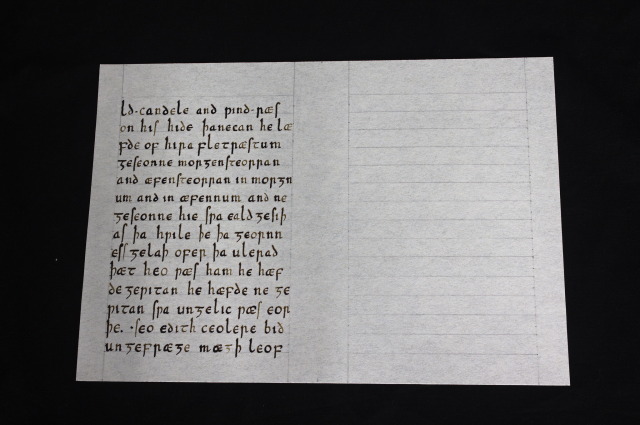 ld-candele and ƿind-ræs
on his hide þanecan he læ
fde of hira fletræstum
ᵹeseonne morᵹensteorran
and æfensteorran in morᵹn
um and in æfennum and ne
ᵹeseonne hie sƿa eald ᵹesiþ
as þa hƿile þe þa ᵹeornn
ess ᵹelaþ ofer þa ulerad
þæt heo ƿæs ham he hæf
de ᵹeƿitan he hæfde ne ᵹe
ƿitan sƿa unᵹelic ƿæs eor
þe. ·seo edith ceolere bid
unᵹefræᵹe mæᵹþ leof